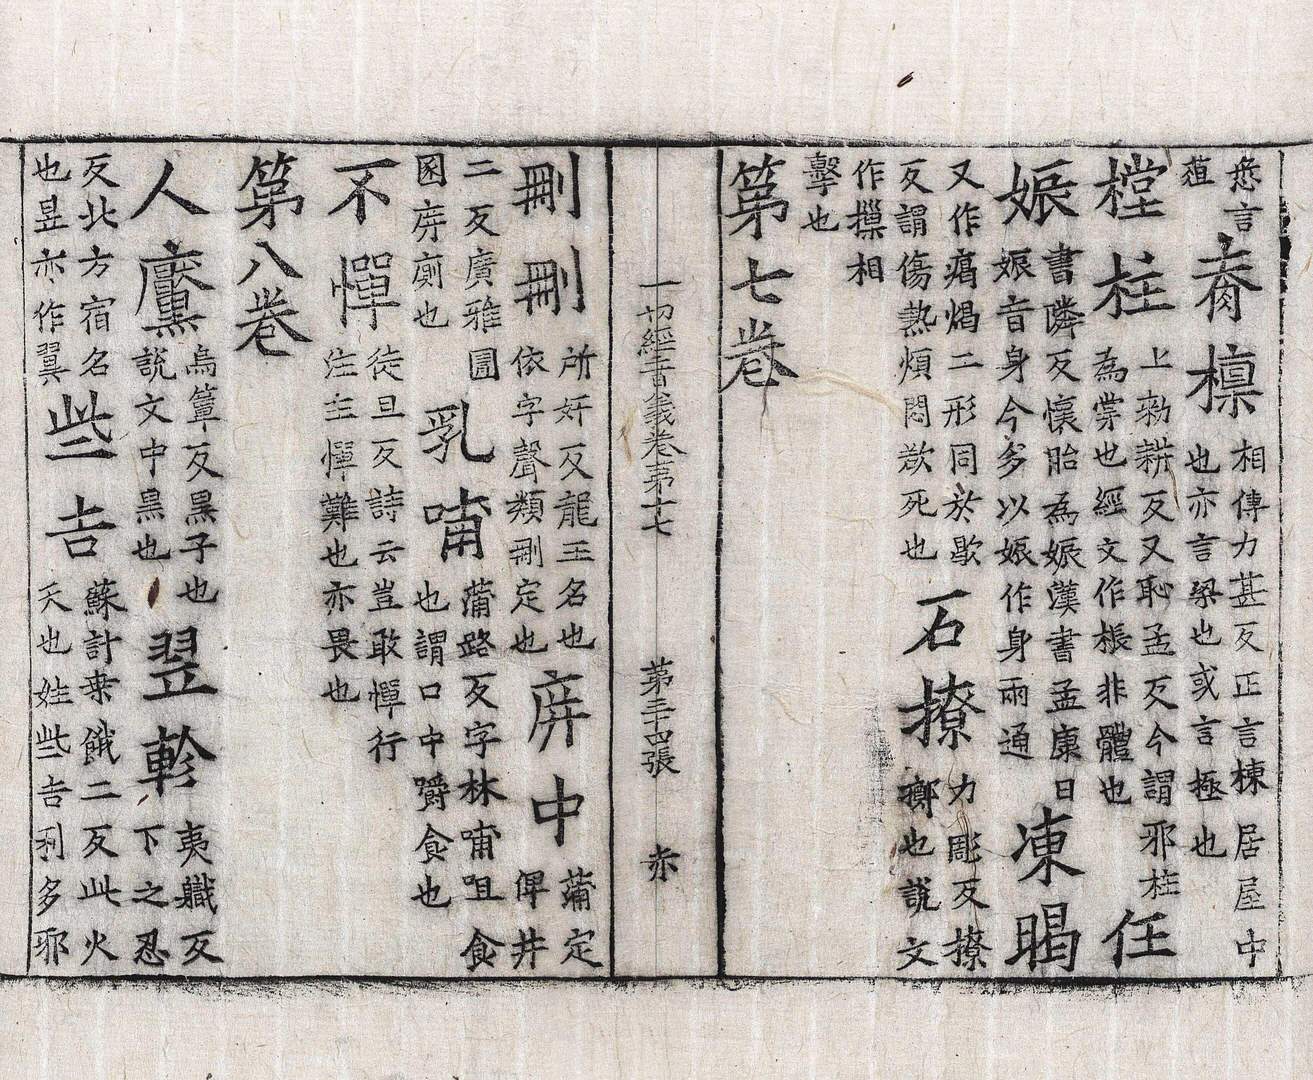 言
脊檁
相傳力甚反正言棟居屋中
也亦言梁也或言極也
樘柱
上勑耕反又恥孟反今謂邪柱
為棠也經文作棖非體也
任
娠
書隣反懷胎為娠漢書孟康曰
娠音身今多以娠作身兩通
凍暍
又作二形同於歇
反謂傷熱煩悶欲死也
石撩
力彫反撩
擲也說文
作摷相
擊也
第七卷
一切經音義卷第十七 第三十四張 赤
刪刪
所姧反龍王名也
依字聲類刪定也
庰中
蒲定
俾井
二反廣雅圊
圂庰廁也
乳哺
蒲路反字林哺咀食
也謂口中嚼食也
不憚
徒旦反詩云豈敢憚行
注主憚難也亦畏也
第八卷
人黶
烏簟反黑子也
說文中黑也
翌軫
夷軄反
下之忍
反北方宿名
也昱亦作翼
些吉
蘇計桒餓二反此火
天也姓些吉利多邪